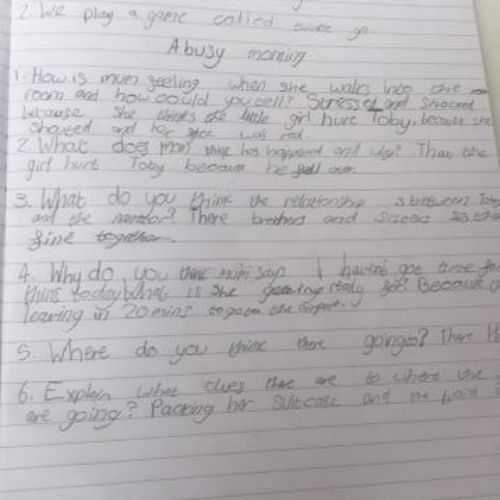 2. We play a game called go.
A busy morning
1. How is mum feeling when she walks into the
room and how could you tell? Stressed and Shocked
because She thinks the little girl hurt Toby, because she
shouted and her face was red.
2. What does mum think has happened and why? That the
girl hurt Toby because he fell over.
3. What do you think the relationship is between Toby
and the narrator? There brothers and
fine together.
4. Why do you think mum says I havent got time for
this today What is she getting ready for? Because
leaving in 20 mins to go to the airport.
5. Where do you think there going to? There
6. Explain what clues there are to where
are going? Packing her Suitcase and the word